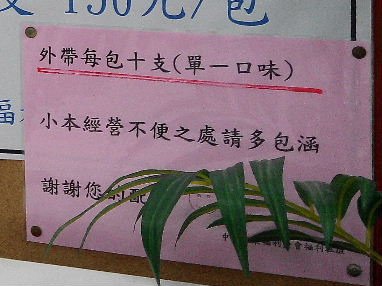 150元/包
外帶每包十支(單一口味)
小本經營不便之處請多包涵
謝謝您
福利